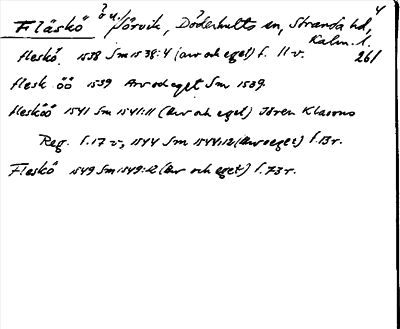 4
Fläskö ö u. Jörvik, Döderhults sn, Stranda hd, Kalm. l.
261
fleskö. 1538 Sm 1538:4 (arv och eget) f. 11 v.
flesk öö 1539 Arv och eget Sm 1539.
flesköö 1541 Sm 1541:11 (Arv och eget) Jören Klasons
Reg. f. 17 v, 1544 Sm 1544:12 (Arv o eget) f. 13 r.
Fleskö 1549 Sm 1549:2 (Arv och eget) f. 73 r.